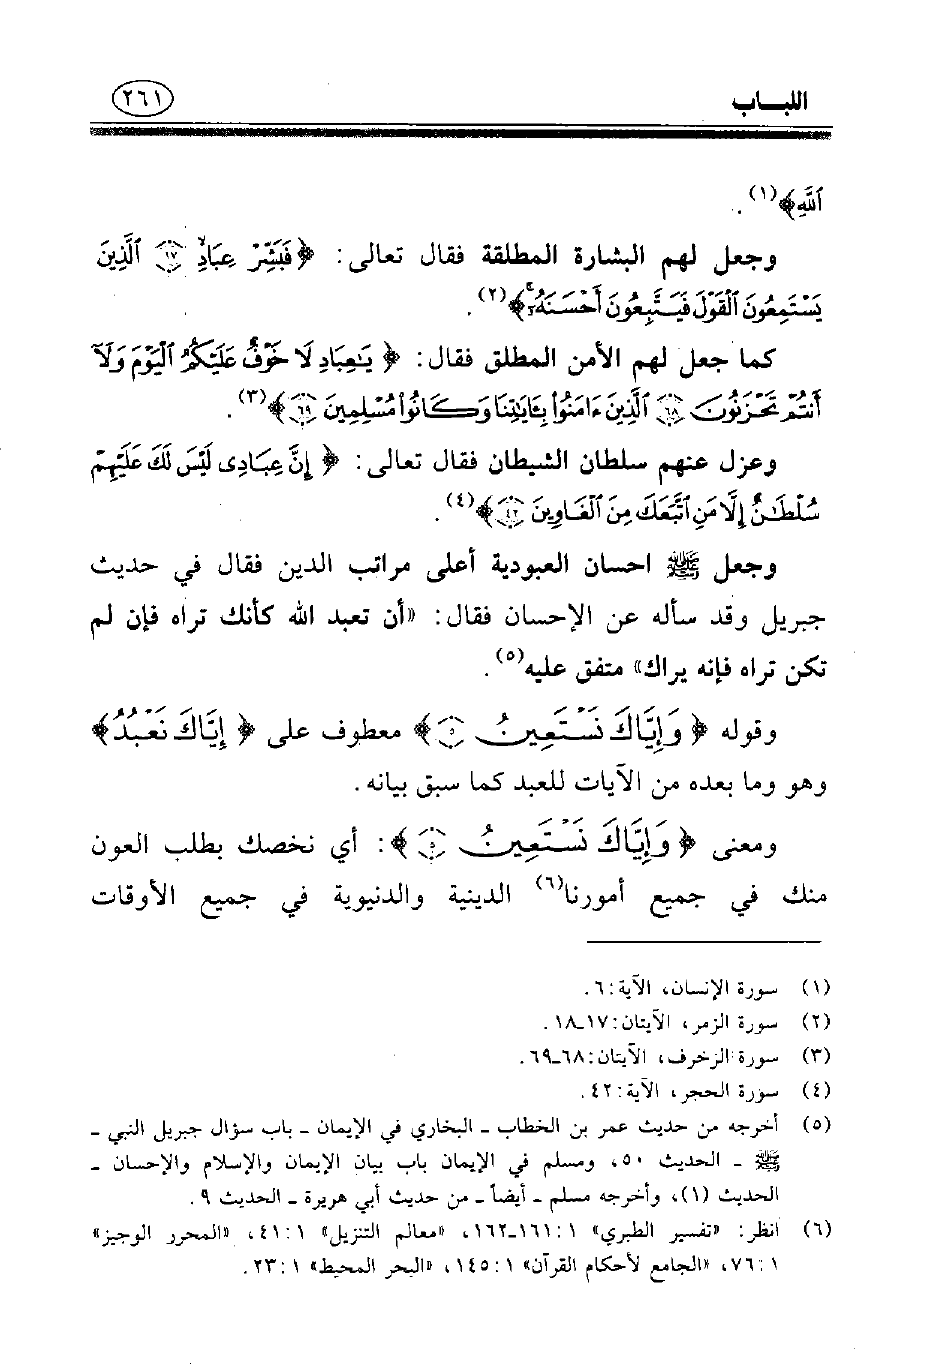 اللبـــاب
٢٦١
ٱللَّهِ﴾(١).
وجعل لهم البشارة المطلقة فقال تعالى: ﴿فَبَشِّرْ عِبَادِ ١٧ ٱلَّذِينَ
يَسْتَمِعُونَ ٱلْقَوْلَ فَيَتَّبِعُونَ أَحْسَنَهُۥٓ﴾(٢).
كما جعل لهم الأمن المطلق فقال: ﴿يَٰعِبَادِ لَا خَوْفٌ عَلَيْكُمُ ٱلْيَوْمَ وَلَآ
أَنتُمْ تَحْزَنُونَ ٦٨ ٱلَّذِينَ ءَامَنُوا۟ بِـَٔايَٰتِنَا وَكَانُوا۟ مُسْلِمِينَ ٦٩﴾(٣).
وعزل عنهم سلطان الشيطان فقال تعالى: ﴿إِنَّ عِبَادِى لَيْسَ لَكَ عَلَيْهِمْ
سُلْطَٰنٌ إِلَّا مَنِ ٱتَّبَعَكَ مِنَ ٱلْغَاوِينَ ٤٢﴾(٤).
وجعل ﷺ احسان العبودية أعلى مراتب الدين فقال في حديث
جبريل وقد سأله عن الإحسان فقال: «أن تعبد الله كأنك تراه فإن لم
تكن تراه فإنه يراك» متفق عليه(٥).
وقوله ﴿وَإِيَّاكَ نَسْتَعِينُ ٥﴾ معطوف على ﴿إِيَّاكَ نَعْبُدُ﴾
وهو وما بعده من الآيات للعبد كما سبق بيانه.
ومعنى ﴿وَإِيَّاكَ نَسْتَعِينُ ٥﴾: أي نخصك بطلب العون
منك في جميع أمورنا(٦) الدينية والدنيوية في جميع الأوقات
(١) سورة الإنسان، الآية: ٦.
(٢) سورة الزمر، الآيتان: ١٧ـ١٨.
(٣) سورة الزخرف، الآيتان: ٦٨ـ٦٩.
(٤) سورة الحجر، الآية: ٤٢.
(٥) أخرجه من حديث عمر بن الخطاب ـ البخاري في الإيمان ـ باب سؤال جبريل النبي ـ
ﷺ ـ الحديث ٥٠، ومسلم في الإيمان باب بيان الإيمان والإسلام والإحسان ـ
الحديث (١)، وأخرجه مسلم ـ أيضاً ـ من حديث أبي هريرة ـ الحديث ٩.
(٦) انظر: «تفسير الطبري» ١: ١٦١ـ١٦٢، «معالم التنزيل» ١: ٤١، «المحرر الوجيز»
١: ٧٦، «الجامع لأحكام القرآن» ١: ١٤٥، «البحر المحيط» ١: ٢٣.